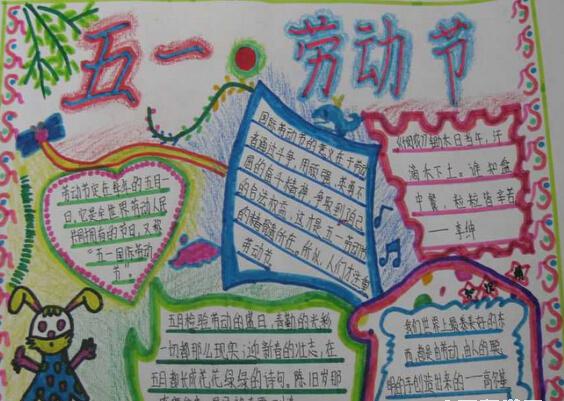 五一 劳动节
劳动节定在每年的五月一
日,它是全世界劳动人民
共同拥有的节日,又称
“五一国际劳动
节”。
国际劳动节的意义在于劳动
者通过斗争,用顽强、英勇不
屈的奋斗精神,争取到自己
的合法权益,
的精髓所在。所以,人们才注重
劳动节
锄禾日当午,汗
滴禾下土。谁知盘
中餐,粒粒皆辛苦
——李绅
五月检验劳动的盛日,春勤的光
一切都那么现实;迎新春的壮志,在
五月都长成花花绿绿的诗句。陈旧岁那
我们世界上最美好的东
西,都是由劳动、由人的聪
明的手创造出来的——高尔基